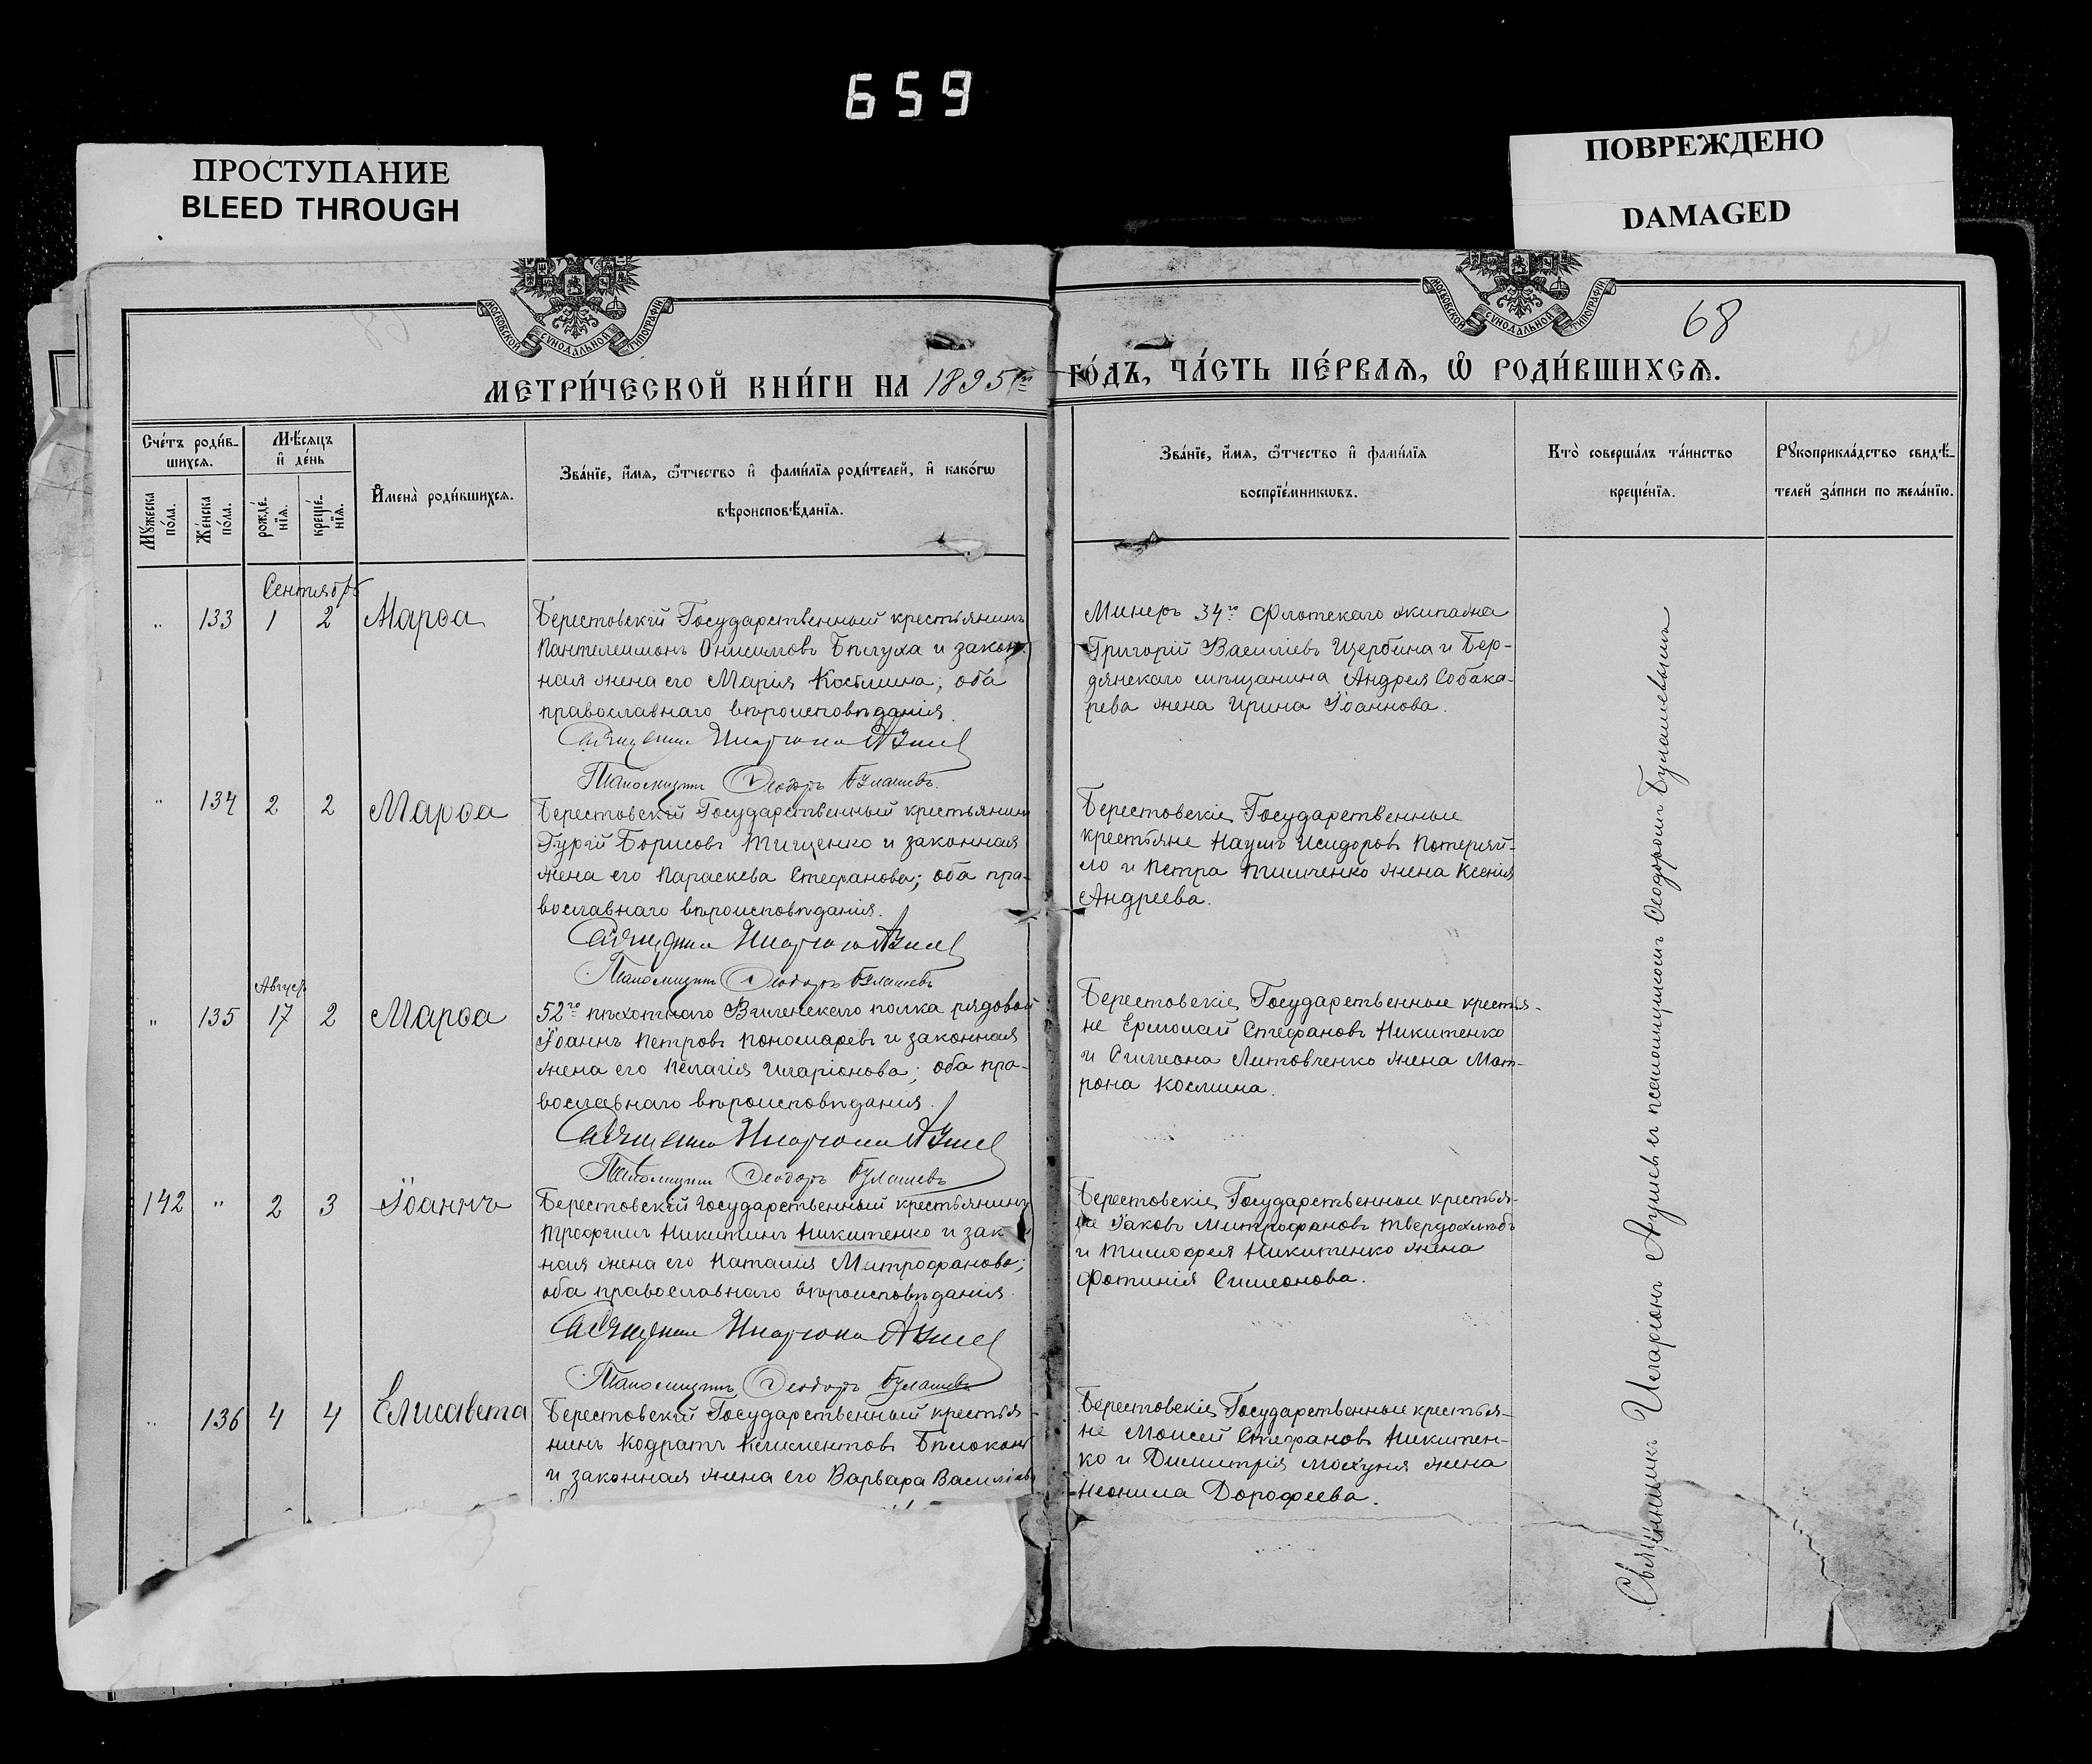 659
ПРОСТУПАНИЕ
BLEED THROUGH
ПОВРЕЖДЕНО
DAMAGED
МОСКОВСКОЙ СѴНОДАЛЬНОЙ ТИПОГРАФІИ
МОСКОВСКОЙ СѴНОДАЛЬНОЙ ТИПОГРАФІИ
68
МЕТРИ́ЧЕСКОЙ КНИ́ГИ НА 1895 й ГО́ДЪ, ЧА́СТЬ ПЕ́РВАЯ, Ѡ РОДИ́ВШИХСЯ.
Сче́тъ роди́в-
шихся.
Мѣ́сяцъ
и де́нь
Мꙋ́жеска
по́ла.
Же́нска
по́ла.
рожде́-
нїя.
креще́-
нїя.
И҆мена̀ роди́вшихся.
Зва́нїе, и҆́мя, ѻ҆́тчество и҆ фами́лїя роди́телей, и҆ како́гѡ
вѣроисповѣ́данїя.
Зва́нїе, и҆́мя, ѻ҆́тчество и҆ фами́лїя
воспрїе́мникѡвъ.
Кто̀ соверша́лъ та́инство
креще́нїя.
Рꙋкоприкла́дство свидѣ́-
телей за́писи по жела́нїю.
Сентябрь
" 133 1 2 Марѳа
Берестовскій Государственный крестьянинъ
Пантелеимонъ Онисимовъ Бѣлуха и закон-
ная жена его Марія Косьмина; оба
православнаго вѣроисповѣданія.
Священникъ Иларіонъ
Псаломщикъ Ѳеодоръ
Минеръ 34го Флотскаго экипажа
Григорій Василіевъ Щербина и Бер-
дянскаго мѣщанина Андрея Собака-
рева жена Ирина Іоаннова.
" 134 2 2 Марѳа
Берестовскій Государственный крестьянинъ
Гурій Борисовъ Тищенко и законная
жена его Параскева Стефанова; оба пра-
вославнаго вѣроисповѣданія.
Священникъ Иларіонъ
Псаломщикъ Ѳеодоръ
Берестовскіе Государственные
крестьяне Наумъ Исидоровъ Потеряй-
ло и Петра Тимченко жена Ксенія
Андреева.
Август
" 135 17 2 Марѳа
52го пѣхотнаго Виленскаго полка рядовой
Іоаннъ Петровъ Пономаревъ и законная
жена его Пелагія Иларіонова; оба пра-
вославнаго вѣроисповѣданія.
Священникъ Иларіонъ
Псаломщикъ Ѳеодоръ
Берестовскіе Государственные крестья-
не Ермолай Стефановъ Никитенко
и Симеона Литовченко жена Мат-
рона Космина.
142 " 2 3 Іоаннъ
Берестовскій Государственный крестьянинъ
Трофимъ Никитинъ Никитенко и зак
ная жена его Наталія Митрофанова;
оба православнаго вѣроисповѣданія.
Священникъ Иларіонъ
Псаломщикъ Ѳеодоръ
Берестовскіе Государственные крестья-
не Іаковъ Митрофановъ Твердохлѣбъ
и Тимофея Никитенко жена
Фотинія Симеонова.
" 136 4 4 Елисавета
Берестовскій Государственный крестья-
нинъ Кодратъ Климентовъ Бѣлоконь
и законная жена его Варвара Василіева
Берестовскіе Государственные крестья-
не Моисей Стефановъ Никитен-
ко и Димитрія жена
Неонила Дорофеева.
Священникъ Иларіонъ съ псаломщикомъ Ѳеодоромъ